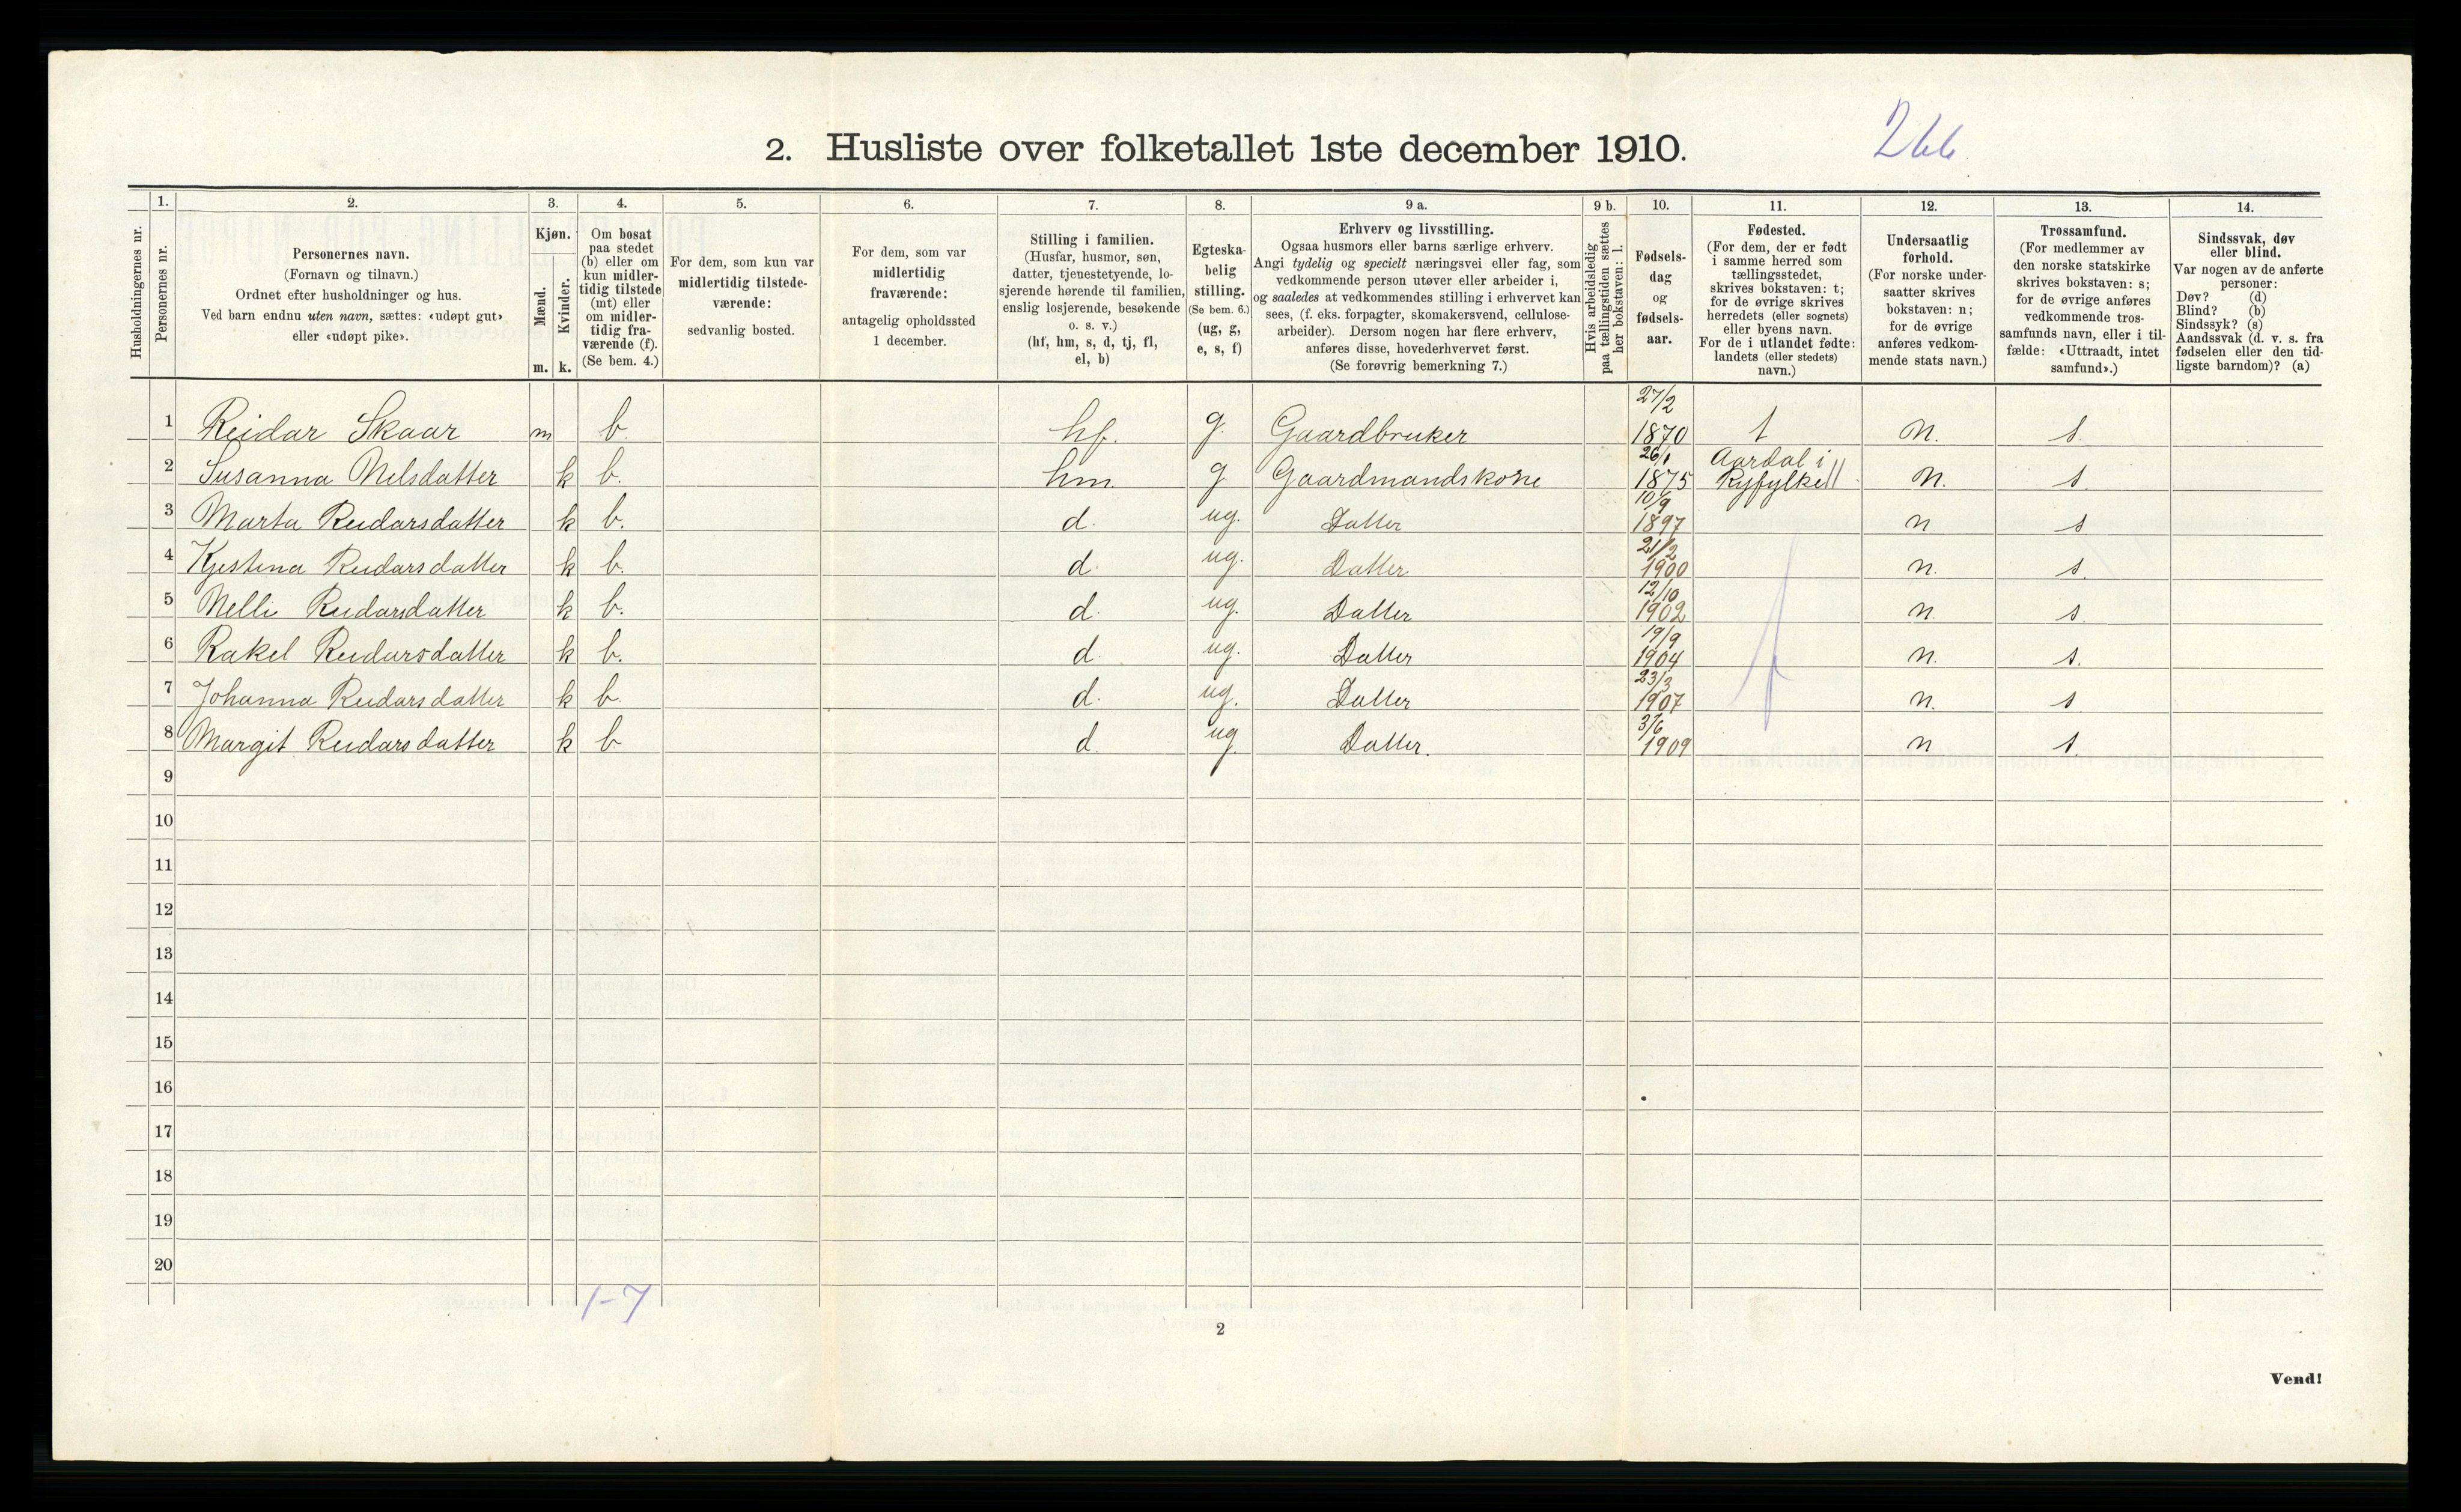 266
2. Husliste over folketallet 1ste december 1910.
Husholdningernes nr.
1. Personernes nr.
2. Personernes navn.
(Fornavn og tilnavn.)
Ordnet efter husholdninger og hus.
Ved barn endnu uten navn, sættes: «udøpt gut»
eller «udøpt pike».
3. Kjøn.
Mænd. Kvinder.
m. k.
4. Om bosat
paa stedet
(b) eller om
kun midler-
tidig tilstede
(mt) eller
om midler-
tidig fra-
værende (f).
(Se bem. 4.)
5. For dem, som kun var
midlertidig tilstede-
værende:
sedvanlig bosted.
6. For dem, som var
midlertidig
fraværende:
antagelig opholdssted
1 december.
7. Stilling i familien.
(Husfar, husmor, søn,
datter, tjenestetyende, lo-
sjerende hørende til familien,
enslig losjerende, besøkende
o. s. v.)
(hf, hm, s, d, tj, fl,
el, b)
8. Egteska-
belig
stilling.
(Se bem. 6.)
(ug, g,
e, s, f)
9 a. Erhverv og livsstilling.
Ogsaa husmors eller barns særlige erhverv.
Angi tydelig og specielt næringsvei eller fag, som
vedkommende person utøver eller arbeider i,
og saaledes at vedkommendes stilling i erhvervet kan
sees, (f. eks. forpagter, skomakersvend, cellulose-
arbeider). Dersom nogen har flere erhverv,
anføres disse, hovederhvervet først.
(Se forøvrig bemerkning 7.)
9 b. Hvis arbeidsledig
paa tællingstiden sættes
her bokstaven: l.
10. Fødsels-
dag
og
fødsels-
aar.
11. Fødested.
(For dem, der er født
i samme herred som
tællingsstedet,
skrives bokstaven: t;
for de øvrige skrives
herredets (eller sognets)
eller byens navn.
For de i utlandet fødte:
landets (eller stedets)
navn.)
12. Undersaatlig
forhold.
(For norske under-
saatter skrives
bokstaven: n;
for de øvrige
anføres vedkom-
mende stats navn.)
13. Trossamfund.
(For medlemmer av
den norske statskirke
skrives bokstaven: s;
for de øvrige anføres
vedkommende tros-
samfunds navn, eller i til-
fælde: «Uttraadt, intet
samfund».)
14. Sindssvak, døv
eller blind.
Var nogen av de anførte
personer:
Døv? (d)
Blind? (b)
Sindssyk? (s)
Aandssvak (d. v. s. fra
fødselen eller den tid-
ligste barndom)? (a)
1 Reidar Skaar m b. hf. g. Gaardbruker 27/2 1870 t n. s.
2 Susanna Nelsdatter k b. hm. g Gaardmandskone 26/1 1875 Aardal i Ryfylke n. s.
3 Marta Reidarsdatter k b. d. ug. Datter 10/9 1897 n s
4 Kjestina Reidarsdatter k b. d. ug. Datter 21/2 1900 n. s.
5 Nelli Reidarsdatter k b. d. ug. Datter 12/10 1902 n. s.
6 Rakel Reidarsdatter k b. d. ug. Datter 19/9 1904 n. s.
7 Johanna Reidarsdatter k b. d. ug. Datter 23/3 1907 n. s
8 Margit Reidarsdatter k b d. ug Datter. 3/6 1909 n s.
9
10
11
12
13
14
15
16
17
18
19
20
1-7
2
Vend!